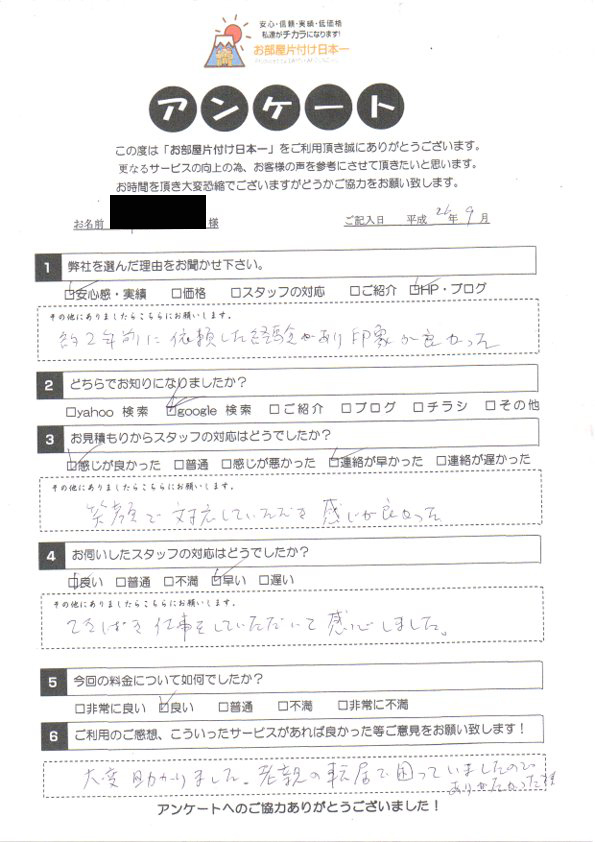 安心・信頼・実績・低価格
私達がチカラになります!
お部屋片付け日本一
アンケート
この度は「お部屋片付け日本一」をご利用頂き誠にありがとうございます。
更なるサービスの向上の為、お客様の声を参考にさせて頂きたいと思います。
お時間を頂き大変恐縮でございますがどうかご協力をお願い致します。
お名前 様 ご記入日 平成 26年 9月
1 弊社を選んだ理由をお聞かせ下さい。
☑安心感・実績 □価格 □スタッフの対応 □ご紹介 ☑HP・ブログ
その他にありましたらこちらにお願いします。
約2年前に依頼した経験があり印象が良かった
2 どちらでお知りになりましたか?
□yahoo 検索 ☑google 検索 □ご紹介 □ブログ □チラシ □その他
3 お見積もりからスタッフの対応はどうでしたか?
☑感じが良かった □普通 □感じが悪かった ☑連絡が早かった □連絡が遅かった
その他にありましたらこちらにお願いします。
笑顔で対応していただき感じが良かった
4 お伺いしたスタッフの対応はどうでしたか?
☑良い □普通 □不満 ☑早い □遅い
その他にありましたらこちらにお願いします。
てきぱき仕事をしていただいて感心しました。
5 今回の料金について如何でしたか?
□非常に良い ☑良い □普通 □不満 □非常に不満
6 ご利用のご感想、こういったサービスがあれば良かった等ご意見をお願い致します!
大変助かりました。老親の転居で困っていましたので
ありがたかったです
アンケートへのご協力ありがとうございました!